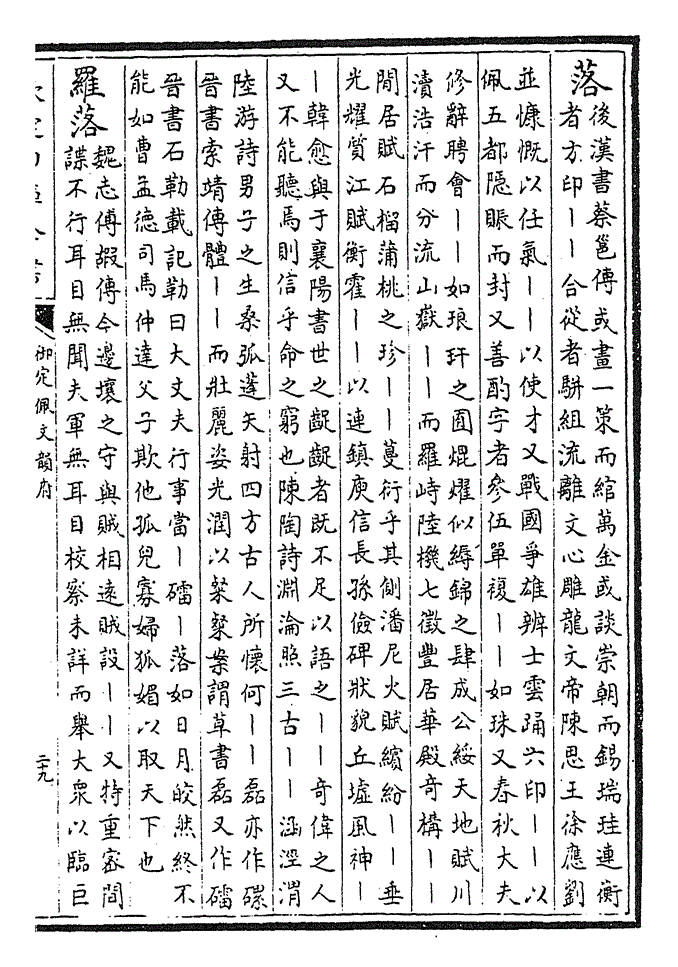 落後漢書蔡邕傳或畫一策而綰萬金或談崇朝而錫瑞珪連衡
者方印丨丨合從者駢組流離文心雕龍文帝陳思王徐應劉
並慷慨以任氣丨丨以使才又戰國爭雄辨士雲踊六印丨丨以
佩五都隱賑而封又善酌字者參伍單複丨丨如珠又春秋大夫
修辭聘會丨丨如琅玕之圃焜燿似縟錦之肆成公綏天地賦川
瀆浩汗而分流山嶽丨丨而羅峙陸機七徵豐居華殿奇構丨丨
閒居賦石榴蒲桃之珍丨丨蔓衍乎其側潘尼火賦繽紛丨丨垂
光耀質江賦衡霍丨丨以連鎮庾信長孫儉碑狀貌丘墟風神丨
丨韓愈與于襄陽書世之齪齪者既不足以語之丨丨奇偉之人
又不能聽焉則信乎命之窮也陳陶詩淵淪照三古丨丨涵涇渭
陸游詩男子之生桑弧蓬矢射四方古人所懷何丨丨磊亦作磥
晉書索靖傳體丨丨而壯麗姿光潤以粲粲案謂草書磊又作礌
晉書石勒載記勒曰大丈夫行事當丨礌丨落如日月皎然終不
能如曹孟德司馬仲達父子欺他孤兒寡婦狐媚以取天下也
羅落魏志傅嘏傳今邊壤之守與賊相遠賊設丨丨又特重密間
諜不行耳目無聞夫軍無耳目校察未詳而舉大衆以臨巨
御定佩文韻府
二十九